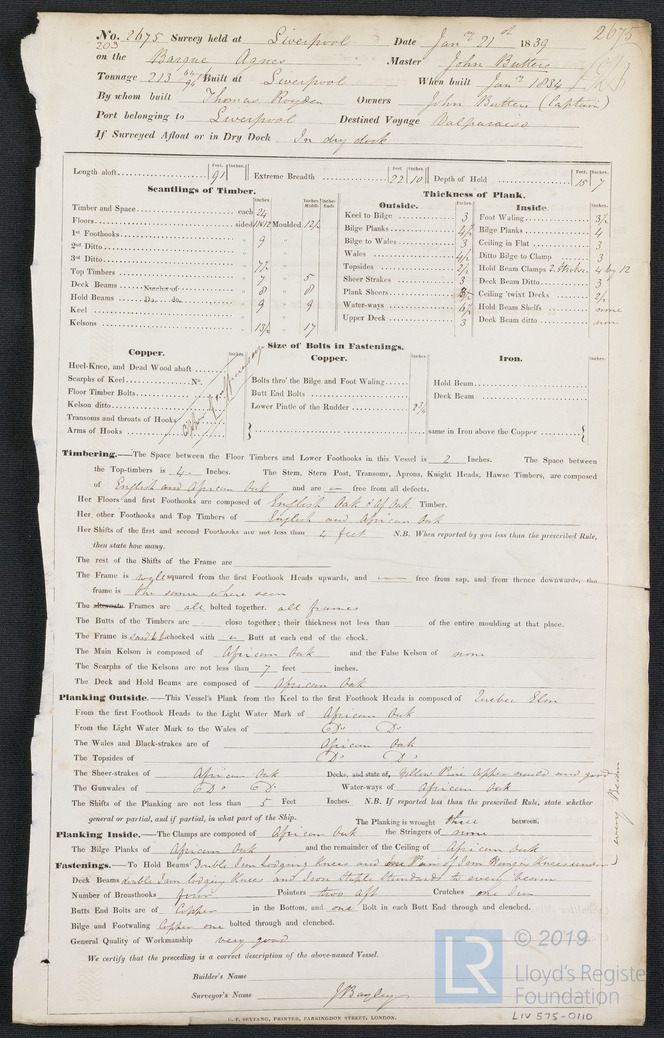 No. 2675 Survey held at Liverpool Date Jany 21st 1839 2675
203
on the Barque Agnes Master John Butters
Tonnage 213 Built at Liverpool When built Jany 1834
By whom built Thomas Royden Owners John Butters (Captain)
Port belonging to Liverpool Destined Voyage Valparaiso
If Surveyed Afloat or in Dry Dock In dry dock
Feet. Inches. Feet Inches. Feet. Inches.
Length aloft 91 Extreme Breadth 22 10 Depth of Hold 15 7
Scantlings of Timber. Thickness of Plank.
Outside. Inside.
Timber and Space each 24 Keel to Bilge 3 Foot Waling 3½
Floors sided Moulded 12½ Bilge Planks 4½ Bilge Planks 4
1st Foothooks 9 Bilge to Wales 3 Ceiling in Flat 3
2nd Ditto Wales 4½ Ditto Bilge to Clamp 3
3rd Ditto 7½ Topsides 2½ Hold Beam Clamps 2 Strakes 4 by 12
Top Timbers 7 5 Sheer Strakes 3 Deck Beam Ditto 3
Deck Beams Number of 8 8 Plank Sheers Ceiling 'twixt Decks 2½
Hold Beams Do. do. 9 9 Water-ways 6½ Hold Beam Shelfs none
Keel Upper Deck 3 Deck Beam ditto non
Kelsons 13½ 17
Size of Bolts in Fastenings.
Copper. Copper. Iron.
Heel-Knee, and Dead Wood abaft
Scarphs of Keel No. Bolts thro' the Bilge and Foot Waling Hold Beam
Floor Timber Bolts Butt End Bolts Deck Beam
Kelson ditto Lower Pintle of the Rudder
Transoms and throats of Hooks
Arms of Hooks same in Iron above the Copper
Timbering.—The Space between the Floor Timbers and Lower Foothooks in this Vessel is 2 Inches. The Space between
the Top-timbers is 4 Inches. The Stem, Stern Post, Transoms, Aprons, Knight Heads, Hawse Timbers, are composed
of English and African Oak and are — free from all defects.
Her Floors and first Foothooks are composed of English Oak & Af Oak Timber.
Her other Foothooks and Top Timbers of English and African Oak
Her Shifts of the first and second Foothooks are not less than 4 feet N.B. When reported by you less than the prescribed Rule,
then state how many.
The rest of the Shifts of the Frame are
The Frame is squared from the first Foothook Heads upwards, and — free from sap, and from thence downwards, the
frame is the same where seen
The alternate Frames are all bolted together. all frames
The Butts of the Timbers are close together; their thickness not less than of the entire moulding at that place.
The Frame is chocked with a Butt at each end of the chock.
The Main Kelson is composed of African Oak and the False Kelson of none
The Scarphs of the Kelsons are not less than 7 feet inches.
The Deck and Hold Beams are composed of African Oak
Planking Outside.—This Vessel's Plank from the Keel to the first Foothook Heads is composed of Quebec Elm
From the first Foothook Heads to the Light Water Mark of African Oak
From the Light Water Mark to the Wales of Do Do
The Wales and Black-strakes are of African Oak
The Topsides of Do Do
The Sheer-strakes of African Oak Decks, and state of, Yellow Pine Copper nailed and good
The Gunwales of Do Do Water-ways of African Oak
The Shifts of the Planking are not less than 5 Feet Inches. N.B. If reported less than the prescribed Rule, state whether
general or partial, and if partial, in what part of the Ship. The Planking is wrought three between.
Planking Inside.—The Clamps are composed of African Oak the Stringers of none
The Bilge Planks of African Oak and the remainder of the Ceiling of African Oak
Fastenings.—To Hold Beams Double Iron Lodging Knees and one Pair of Iron Hanging Knees under every Beam
Deck Beams double Iron lodging Knees and Iron Staple Standards to every beam
Number of Breasthooks four Pointers two aft Crutches one Iron
Butts End Bolts are of Copper in the Bottom, and one Bolt in each Butt End through and clenched.
Bilge and Footwaling Copper one bolted through and clenched.
General Quality of Workmanship very good
We certify that the preceding is a correct description of the above-named Vessel.
Builder's Name
Surveyor's Name J Bayley
C. F. SEYFANG, PRINTER, FARRINGDON STREET, LONDON.
LR © 2019
Lloyd's Register
Foundation
LIV 575-0110